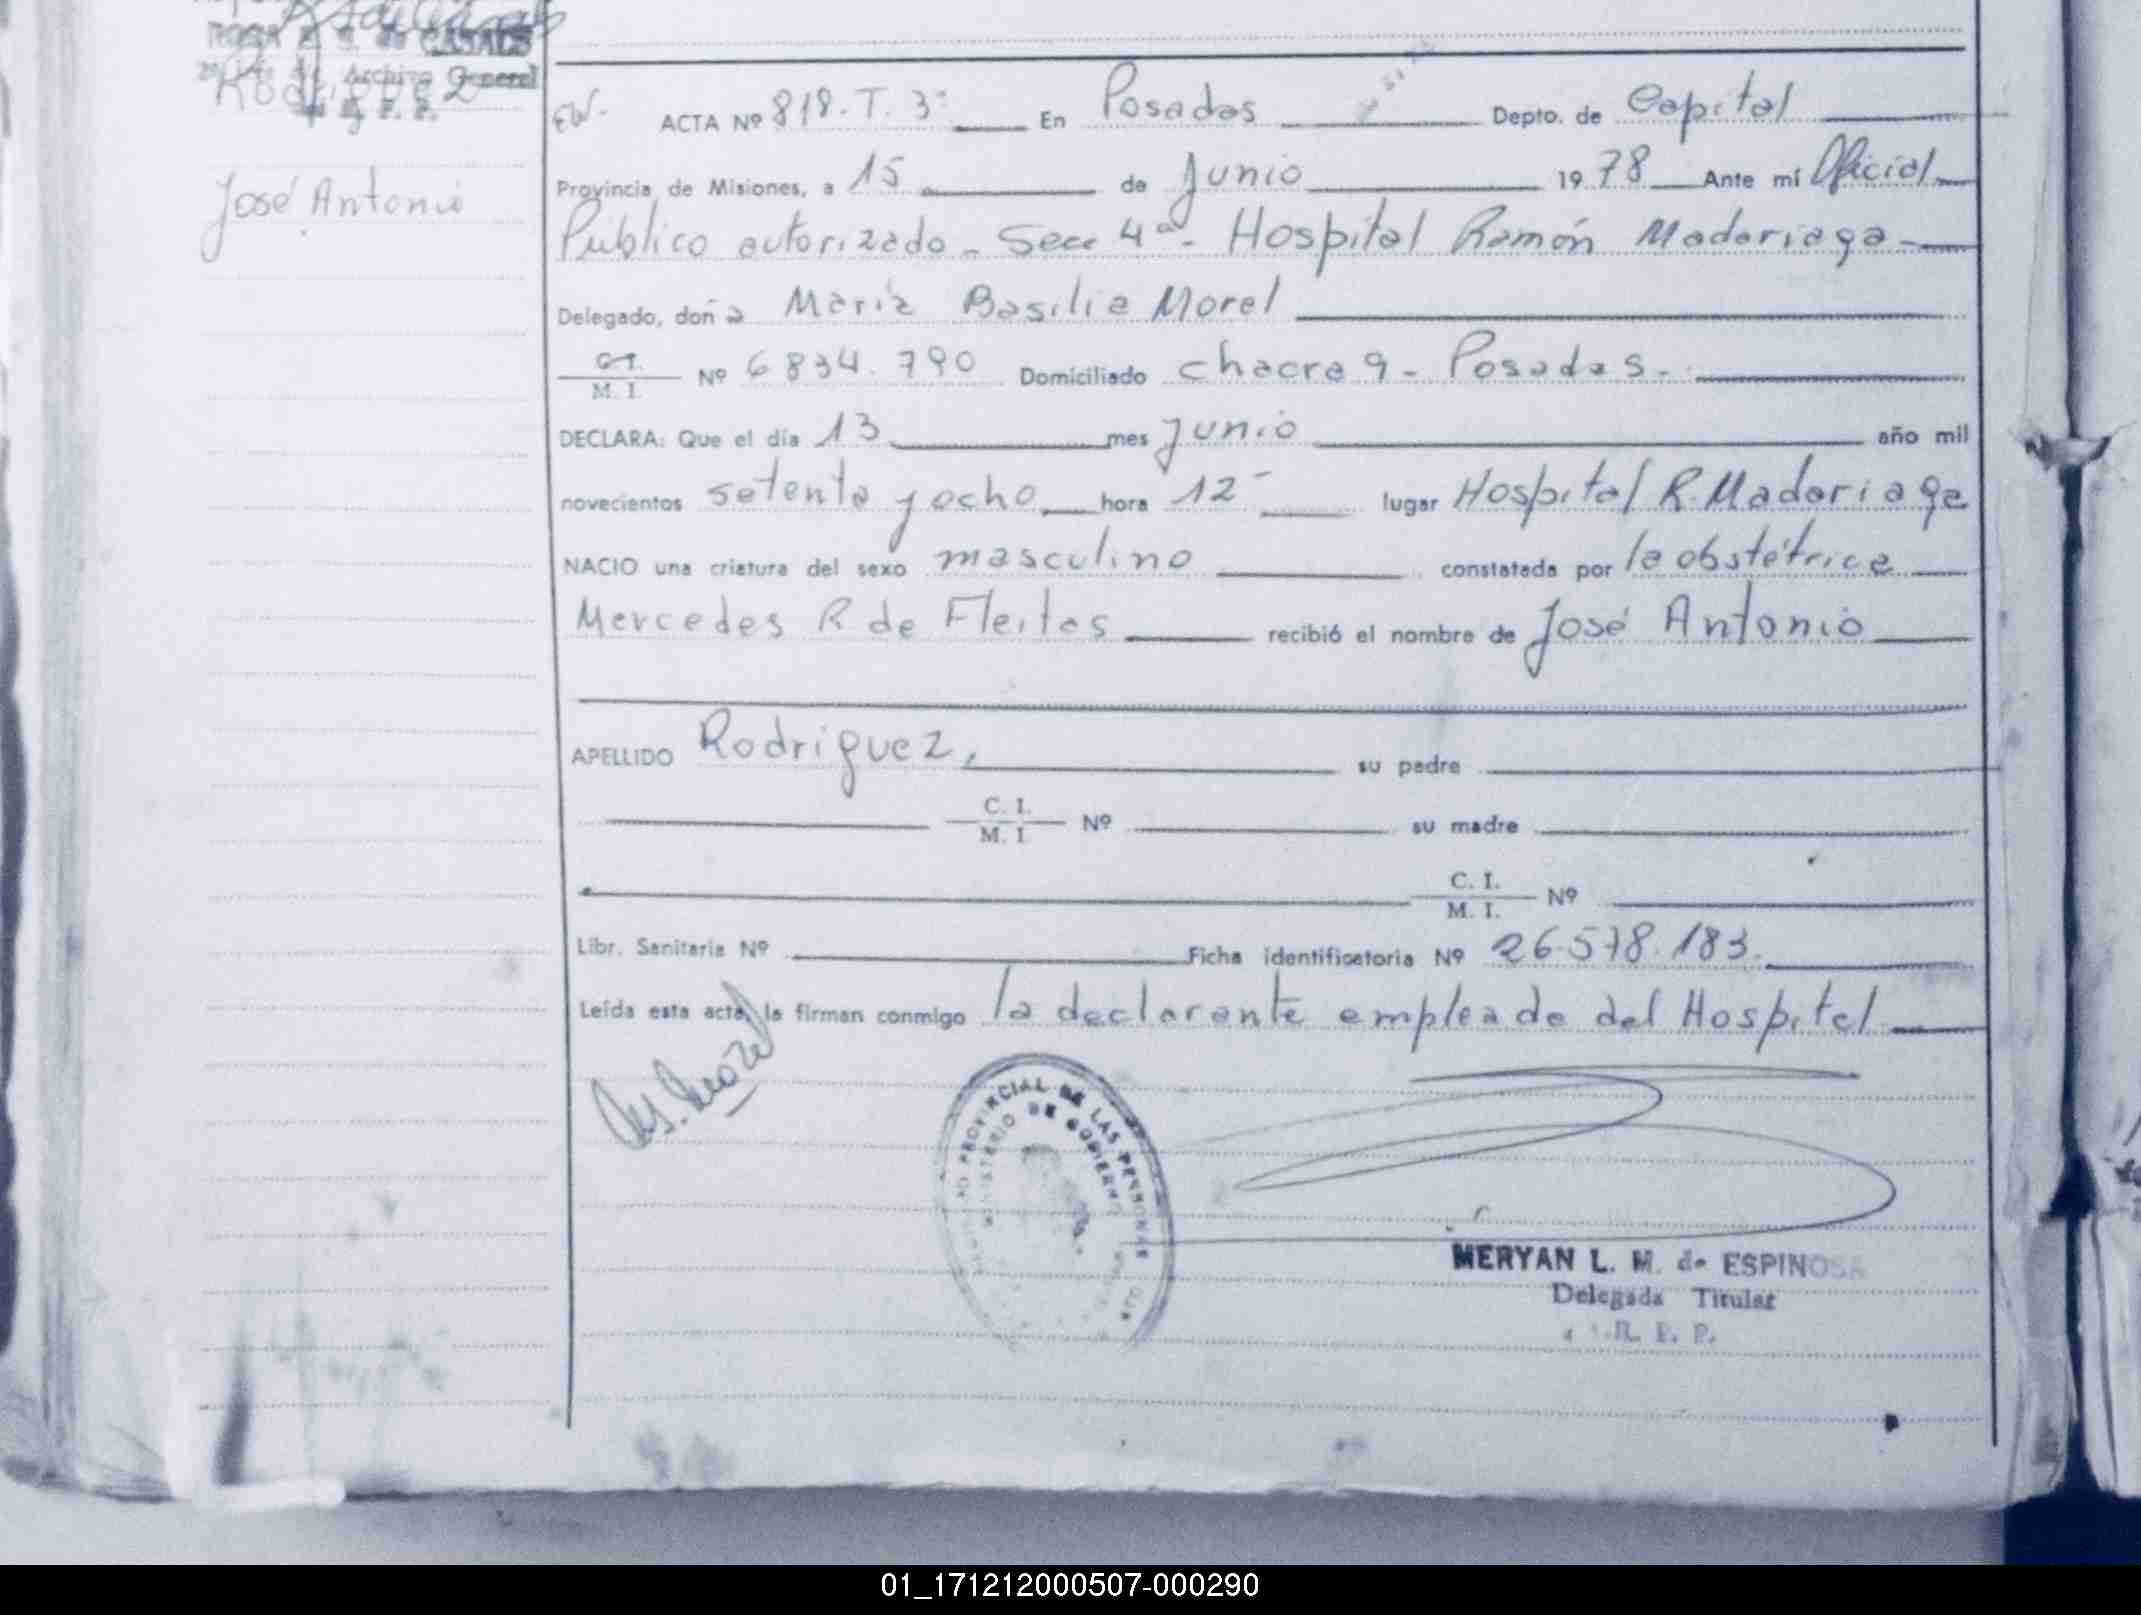 ROSA E. G. de CASALS
Archivo General
Rodriguez
José Antonio
ACTA Nº 818 - T. 3º En Posadas Depto. de Capital
Provincia de Misiones, a 15 de Junio 1978 Ante mí Oficial
Público autorizado - Secc 4ª - Hospital Ramón Madariaga -
Delegado, doña Maria Basilia Morel
C.I. / M. I. Nº 6834.790 Domiciliado chacra 9 - Posadas -
DECLARA: Que el día 13 mes Junio año mil
novecientos setenta y ocho hora 12 - lugar Hospital R. Madariaga
NACIO una criatura del sexo masculino constatada por la obstétrica
Mercedes R de Fleitas recibió el nombre de José Antonio
APELLIDO Rodriguez, su padre
C. I. / M. I. Nº su madre
C. I. / M. I. Nº
Libr. Sanitaria Nº Ficha identificatoria Nº 26.578.183.
Leída esta acta, la firman conmigo la declarante empleada del Hospital
PROVINCIAL DE LAS PERSONAS
MINISTERIO DE GOBIERNO
MERYAN L. M. de ESPINOSA
Delegada Titular
R. P. P.
01_171212000507-000290